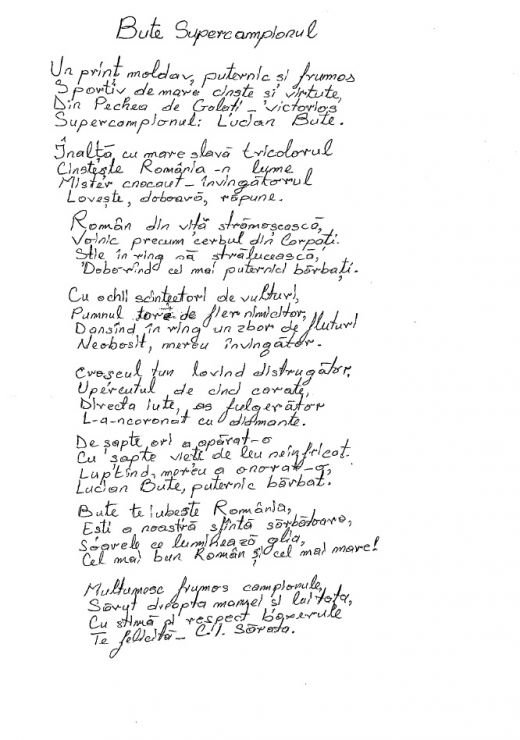 Bute Supercampionul
Un prinț moldav, puternic și frumos
Sportiv de mare cinste și virtute,
Din Pechea de Galați - victorios
Supercampionul: Lucian Bute.
Înalță cu mare slavă tricolorul
Cinstește România -n lume
Mister cnocaut - învingătorul
Lovește, doboară, răpune.
Român din viță strămoșească,
Voinic precum cerbul din Carpați.
Știe în ring să strălucească,
Doborînd cei mai puternici bărbați.
Cu ochii scînteetori de vulturi,
Pumnul de fier nimicitor,
Dansînd în ring un zbor de fluturi
Neobosit, mereu învingător.
Croșeul tun lovind distrugător,
Upercutul de cinci carate,
Directa iute, fulgerător
L-a-ncoronat cu diamante.
De șapte ori a apărat-o
Cu șapte vieți de leu neînfricat.
Luptînd, mereu a onorat-o,
Lucian Bute, puternic bărbat.
Bute te iubește România,
Ești a noastră sfîntă sărbătoare,
Soarele ce luminează glia,
Cel mai bun Român și cel mai mare!
Mulțumesc frumos campionule,
Sărut dreapta mamei și lui tata,
Cu stimă și respect boxerule
Te felicită - C.I. Sărata.